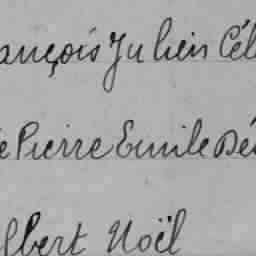 ançois Julien Cél
e Pierre Emile Dés
lbert Noël